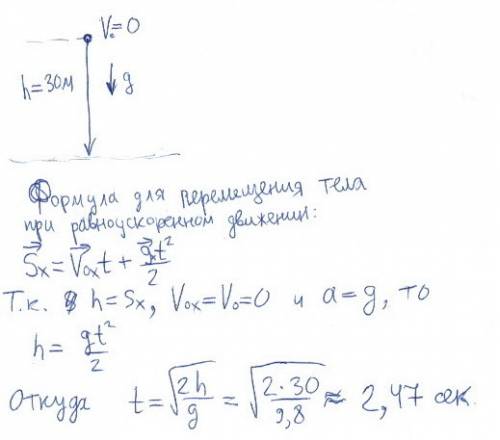 V₀=0
h=30м
g
Формула для перемещения тела
при равноускоренном движении:
S⃗x=V⃗₀xt+g⃗xt²/2
Т.к. h=Sx, V₀x=V₀=0 и a=g, то
h=gt²/2
Откуда t=√(2h/g)=√(2·30/9,8)≈2,47 сек.